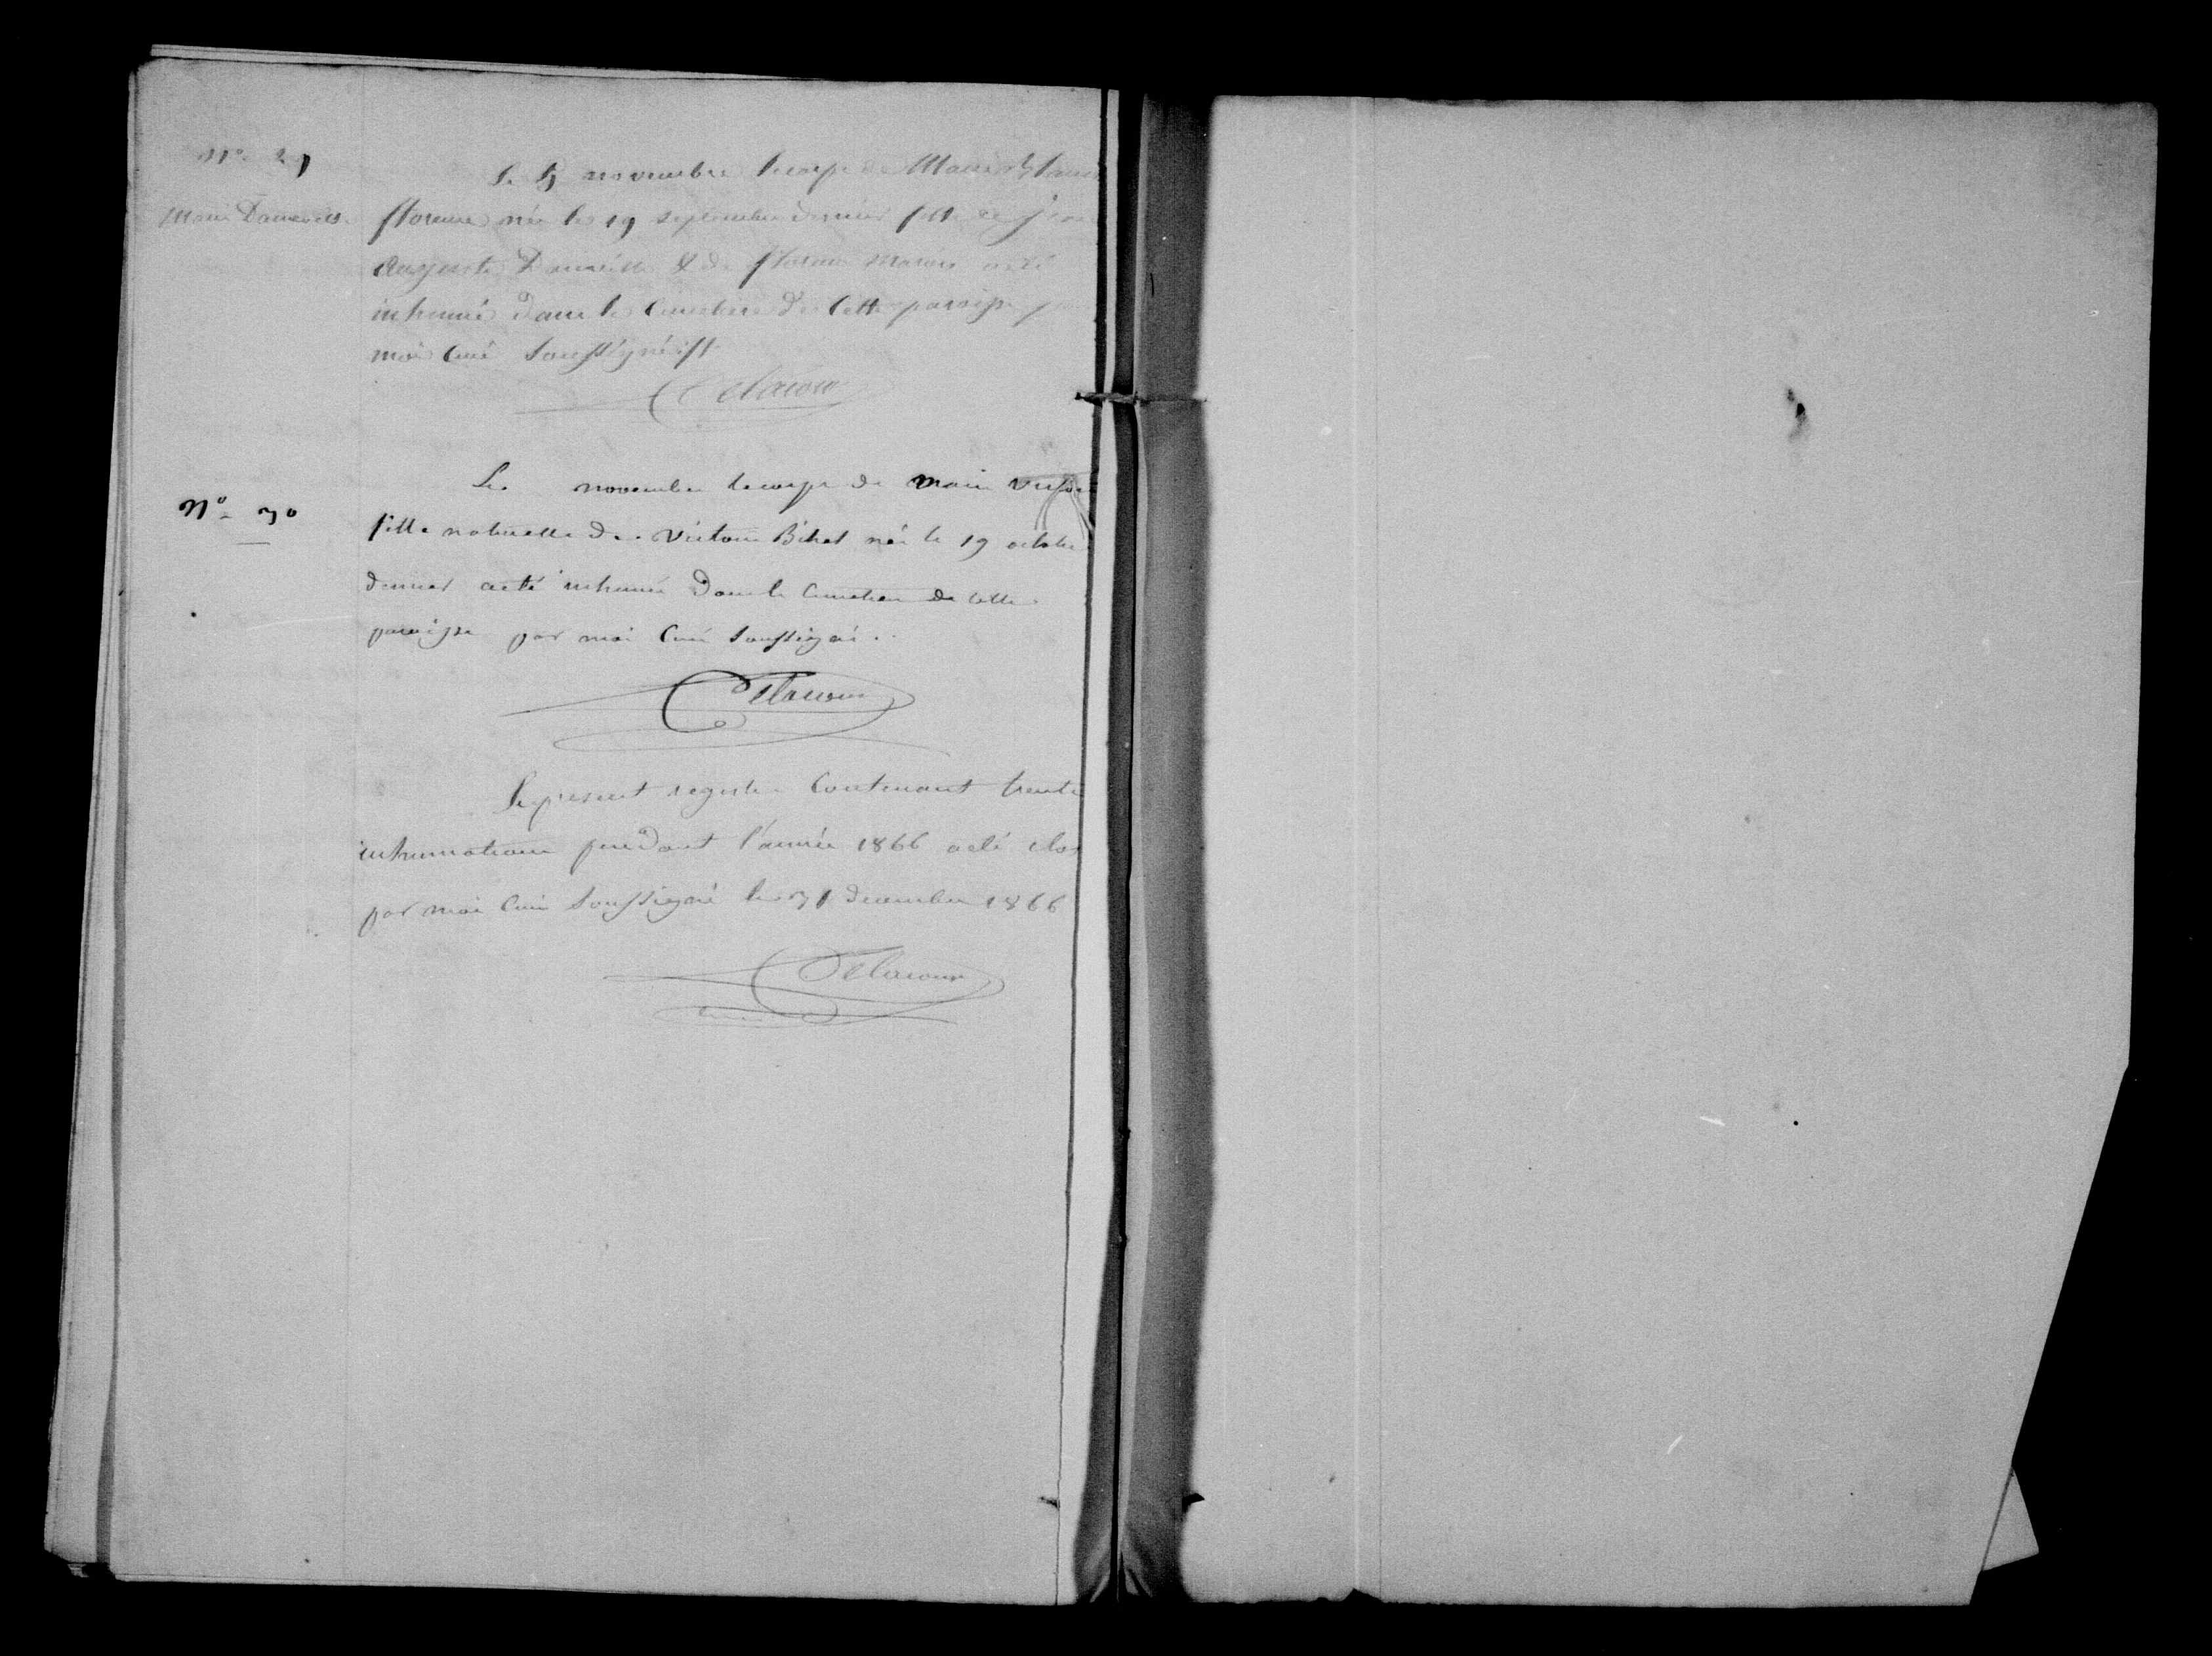 N° 29
Le 5 novembre le corps de Marie
Marie
florence née le 19 septembre dernier fille de
auguste & de florence a été
inhumé dans le cimetiere de cette paroisse
moi curé soussigné
Delacour
N° 30
Le novembre le corps de marie
fille naturelle de victoire Bihel née le 19 octobre
dernier a été inhumé dans le cimetiere de cette
paroisse par moi curé soussigné.
Delacour
Le present registre contenant trente
inhumations pendant l'année 1866 a été clos
par moi curé soussigné le 31 decembre 1866
Delacour